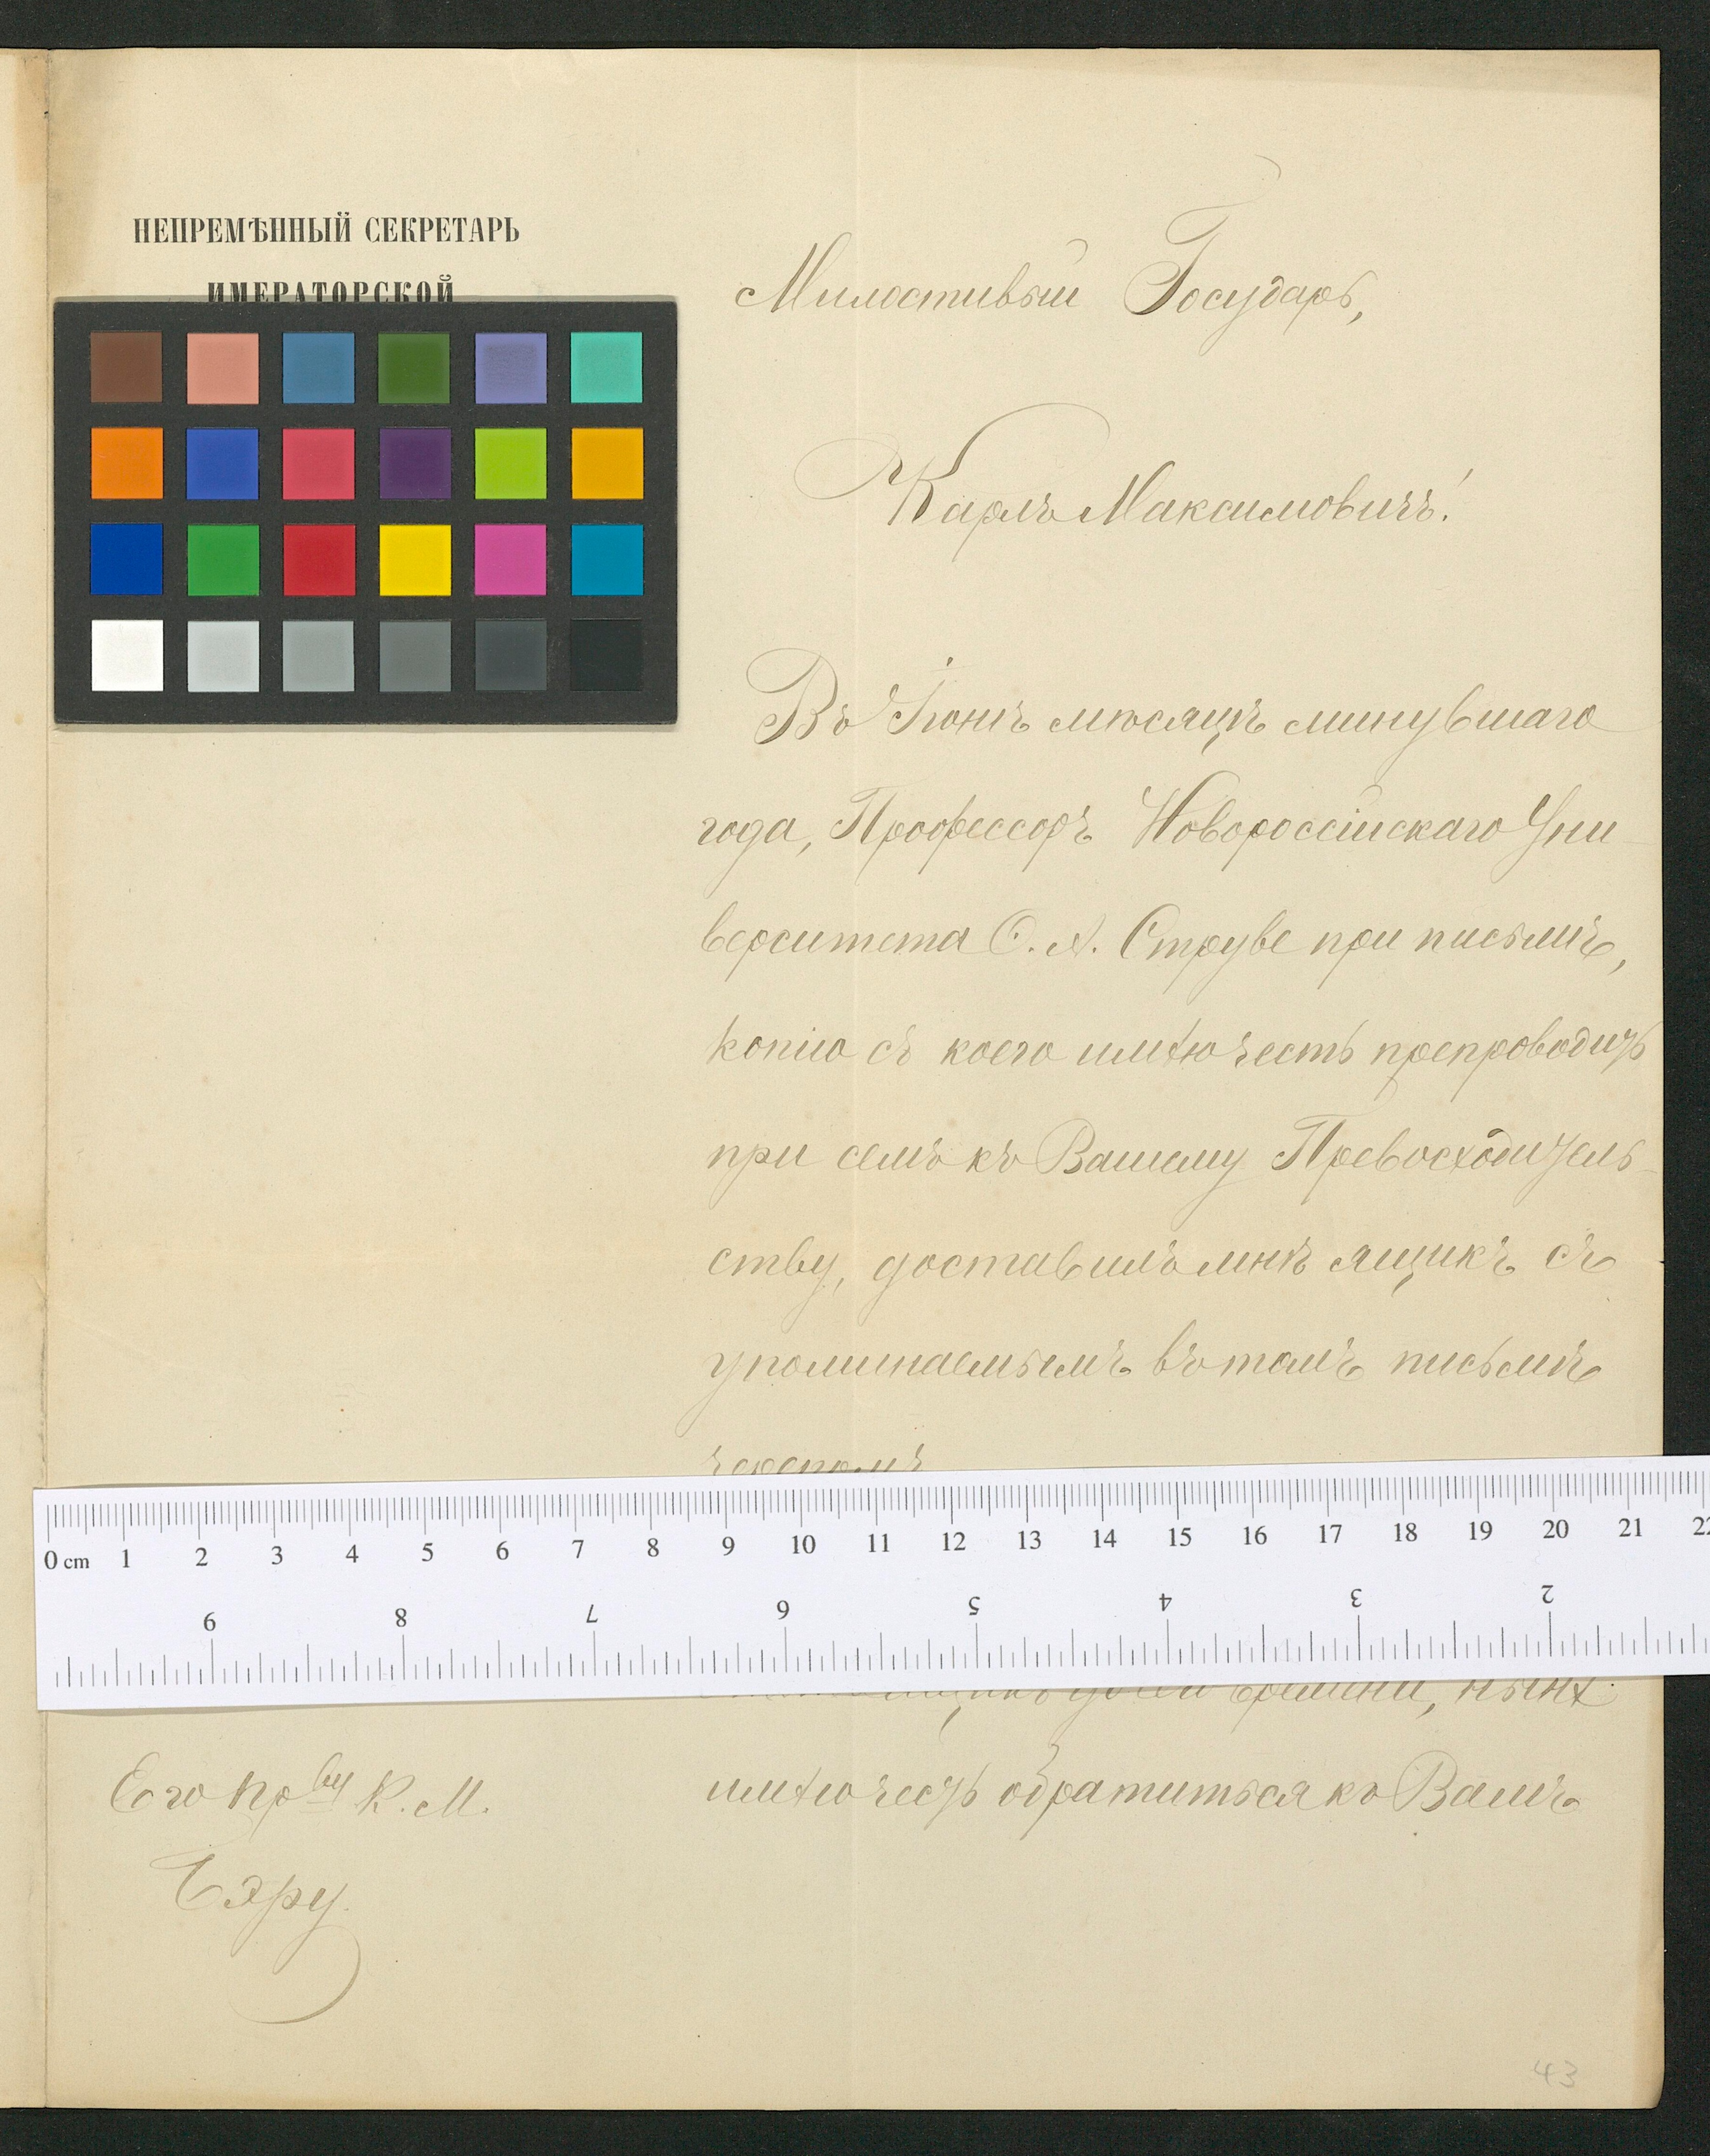 НЕПРЕМѢННЫЙ СЕКРЕТАРЬ
ИМЕРАТОРСКОЙ
Милостивый Государь,
Карлъ Максимовичъ!
Въ Іюнѣ мѣсяцѣ минувшаго
года, Профессоръ Новороссійскаго Уни-
верситета Ѳ. А. Струве при письмѣ,
копію съ коего имѣю честь препроводить
при семъ къ Вашему Превосходитель-
ству, доставилъ мнѣ ящикъ съ
упоминаемымъ въ томъ письмѣ
черепомъ
0 cm 1 2 3 4 5 6 7 8 9 10 11 12 13 14 15 16 17 18 19 20 21 22
9 8 7 6 5 4 3 2
ящикъ до сей времени, нынѣ
имѣю честь обратиться къ Вамъ
Его Пр-ву К. М.
Бэру.
43